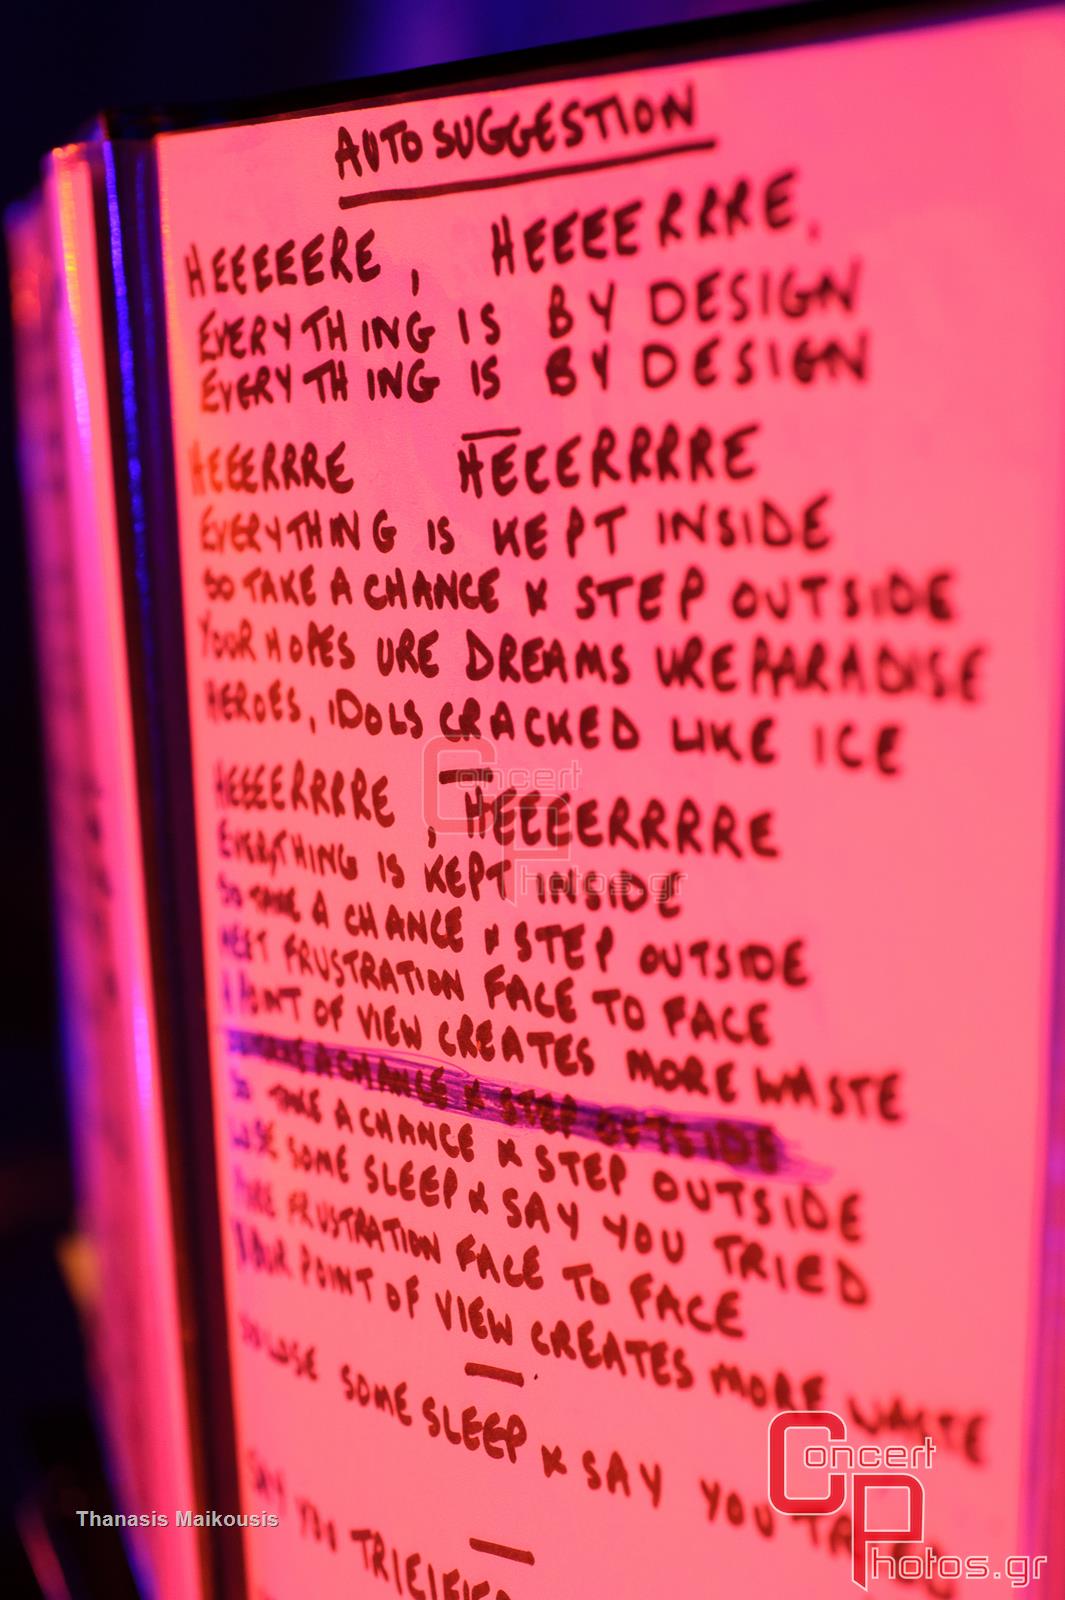 AUTOSUGGESTION
HEEEEERE, HEEEERRRE.
EVERYTHING IS BY DESIGN
EVERYTHING IS BY DESIGN
HEEERRRE HEEERRRRE
EVERYTHING IS KEPT INSIDE
SO TAKE A CHANCE & STEP OUTSIDE
YOUR HOPES URE DREAMS URE PARADISE
HEROES, IDOLS CRACKED LIKE ICE
HEEEERRRRE, HEEEEERRRRE
EVERYTHING IS KEPT INSIDE
SO TAKE A CHANCE & STEP OUTSIDE
MEET FRUSTRATION FACE TO FACE
A POINT OF VIEW CREATES MORE WASTE
A CHANCE & STEP OUTSIDE
SO TAKE A CHANCE & STEP OUTSIDE
LOSE SOME SLEEP & SAY YOU TRIED
FRUSTRATION FACE TO FACE
YOUR POINT OF VIEW CREATES MORE WASTE
LOSE SOME SLEEP & SAY YOU
SAY YOU
Concert Photos.gr
Thanasis Maikousis
Concert Photos.gr